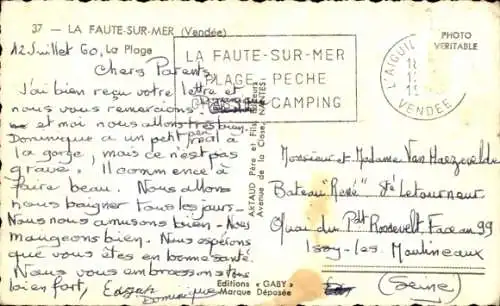 37 — LA FAUTE-SUR-MER (Vendée)
12 Juillet 60, La Plage
Chers Parents
J'ai bien reçu votre lettre et
nous vous remercions.
et moi nous allons très bien.
Dominique a un petit peu mal à
la gorge, mais ce n'est pas
grave. Il commence à
faire beau. Nous allons
nous baigner tous les jours.
Nous nous amusons bien. Nous
mangeons bien. Nous espérons
que vous êtes en bonne santé.
Nous vous embrassons tous
bien fort, Edgar
Dominique
LA FAUTE-SUR-MER
PLAGE PECHE
CAMPING
L'AIGUIL
VENDEE
PHOTO
VERITABLE
ARTAUD Père et Fils, Editeurs
Avenue de la Close, NANTES
Monsieur et Madame Van
Bateau "René" St Letourneur
Quai du Pdt Roosevelt. Face au 99
Issy-les-Moulineaux
(Seine)
Editions « GABY »
Marque Déposée